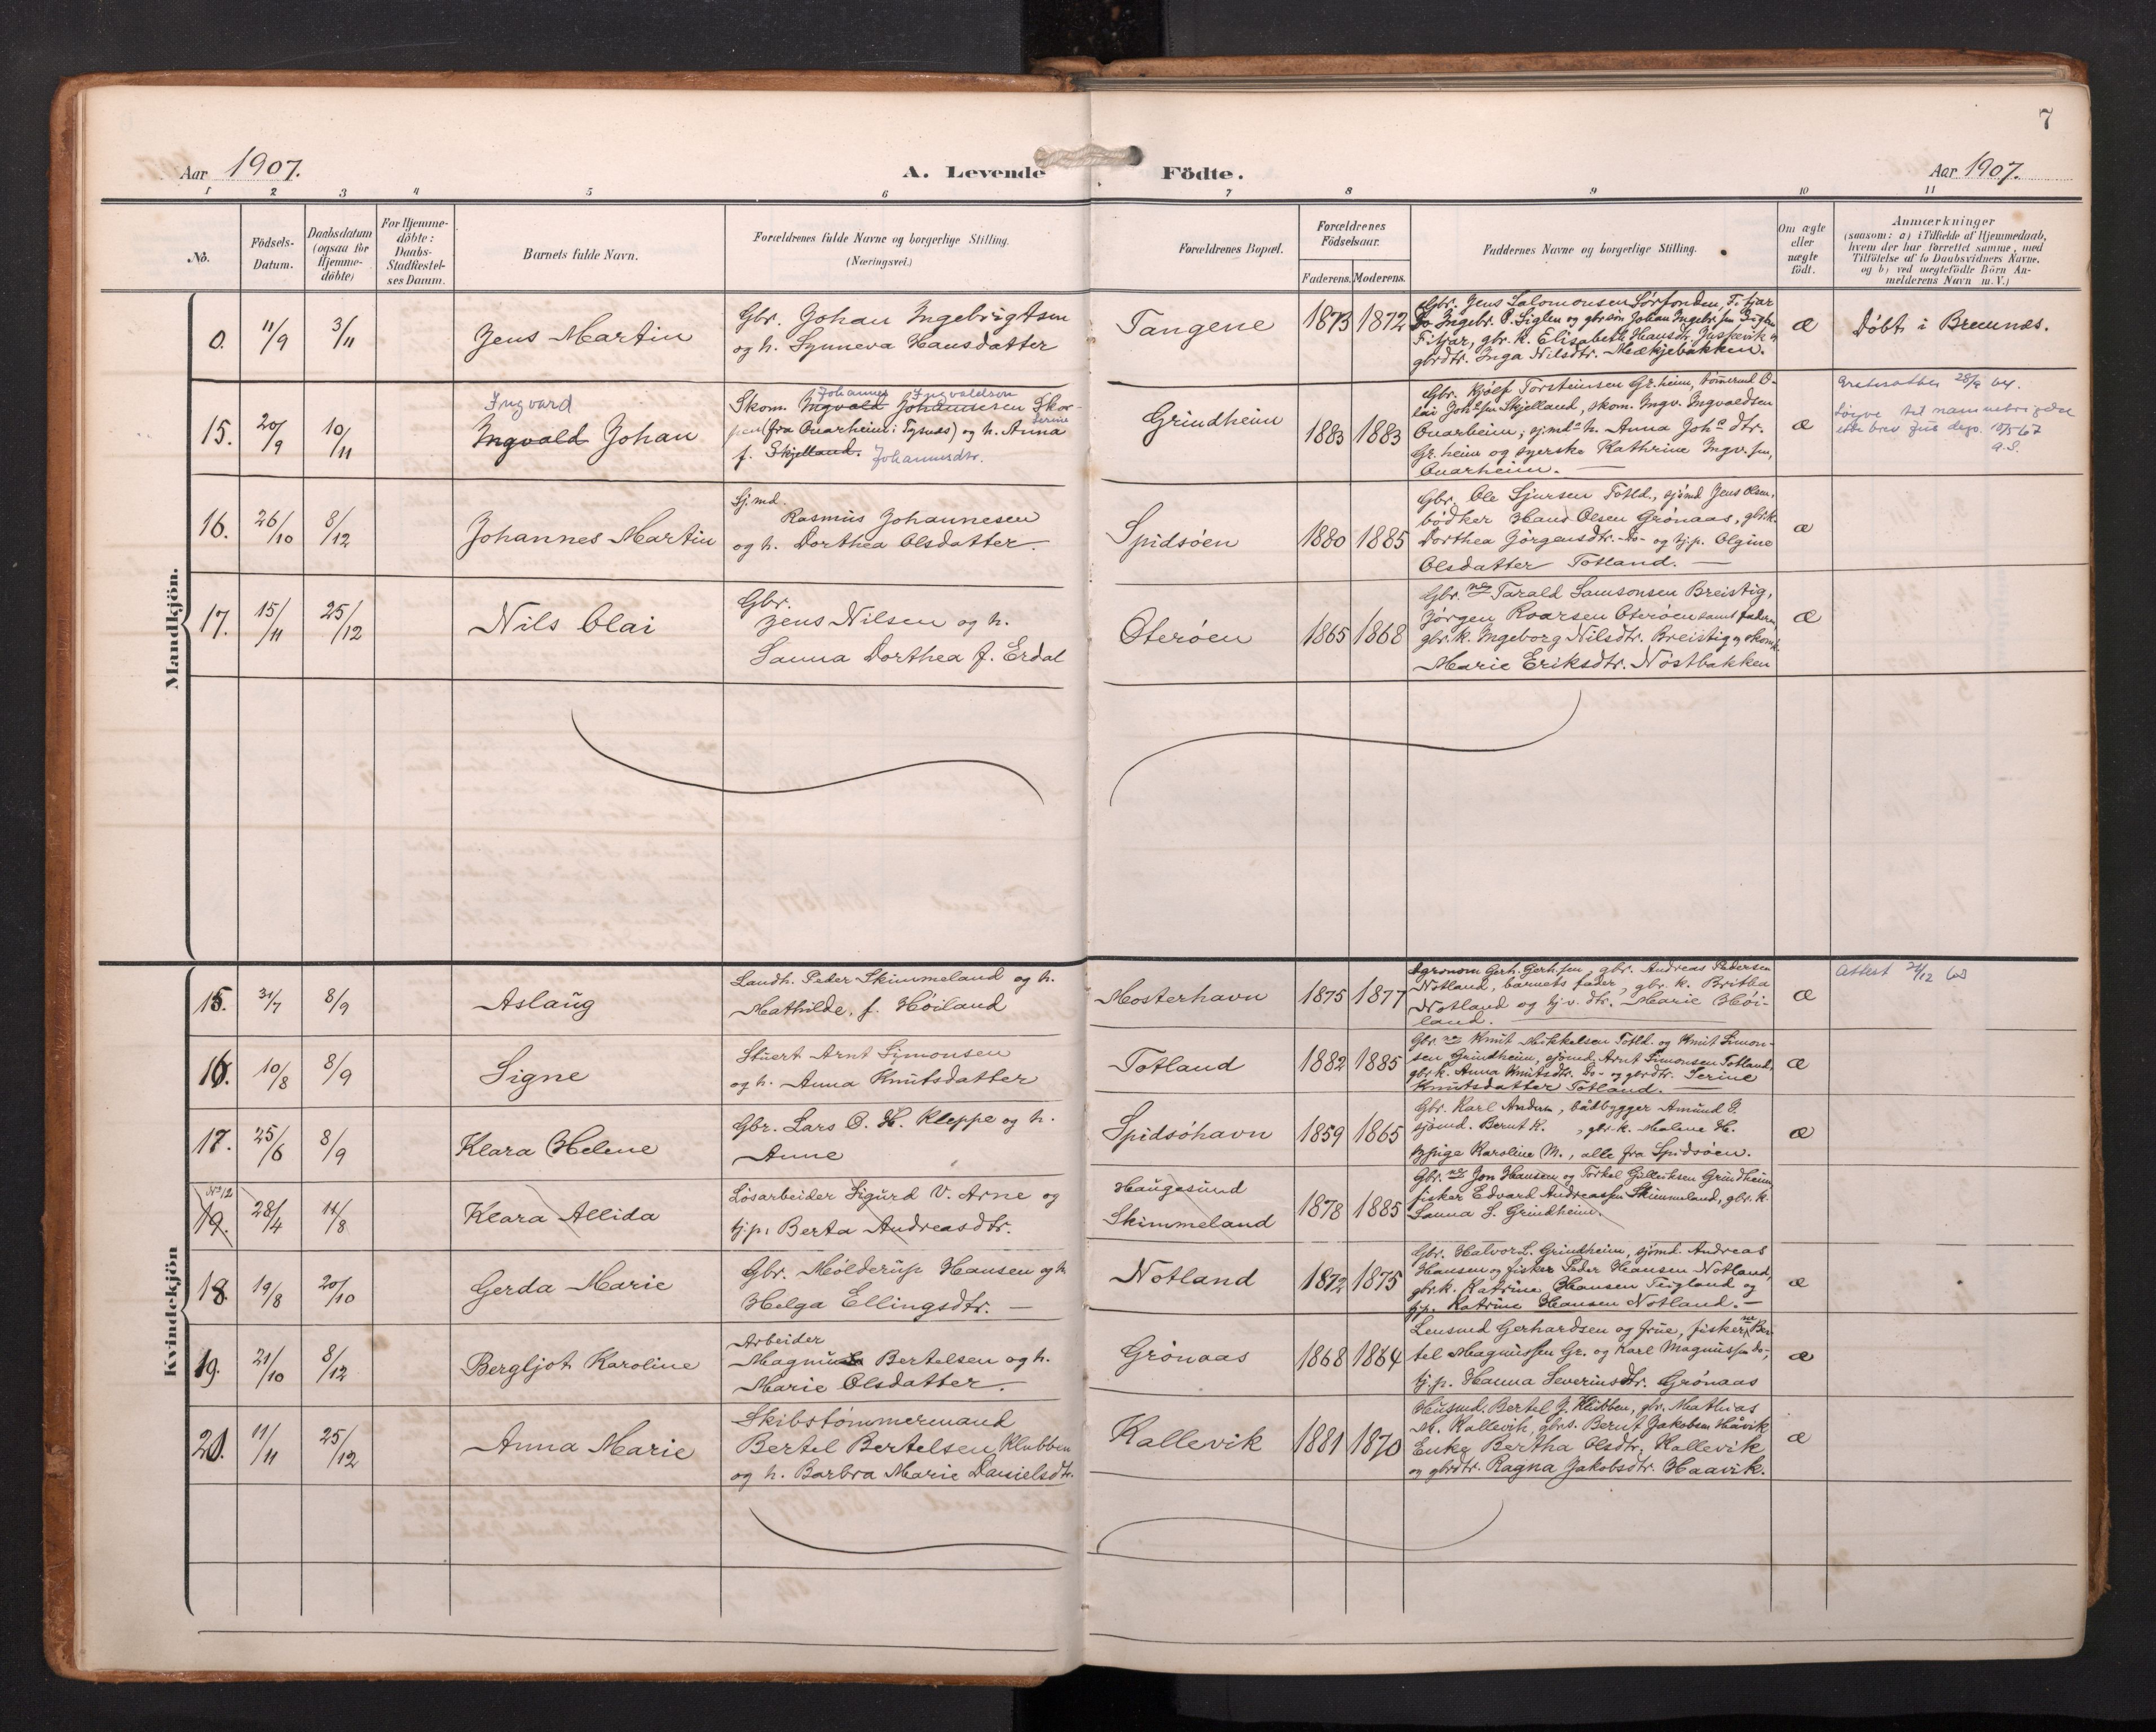 7
Aar 1907.
A. Levende Födte.
Aar 1907.
1 2 3 4 5 6 7 8 9 10 11
No.
Födsels-Datum.
Daabsdatum (ogsaa for Hjemme-döbte)
For Hjemme-döbte: Daabs-Stadfæstel-ses Datum.
Barnets fulde Navn.
Forældrenes fulde Navne og borgerlige Stilling.
(Næringsvei.)
Forældrenes Bopæl.
Forældrenes Födselsaar.
Faderens. Moderens.
Faddernes Navne og borgerlige Stilling.
Om ægte eller uægte födt.
Anmærkninger
(saasom: a) i Tilfælde af Hjemmedaab,
hvem der har forrettet samme, med
Tilföielse af to Daabsvidners Navne.
og b) ved uægtefödte Börn An-
melderens Navn m. V.)
Mandkjön.
0. 11/9 3/11 Jens Martin
Gbr. Johan Ingebrigtsen
og h. Synneva Hansdatter
Tangene 1873 1872
Gbr. Jens Salomonsen Sørfonden, Fitjar
Do Ingebr. O. Siglen og gbrsøn Johan Ingebr.sen Siglen
Fitjar, gbr. k. Elisabeth Hansdtr.
gbrdtr. Inga Nilsdtr. Mækjebakken.
æ Døbt i Bremnes.
15. 20/9 10/11
Ingvard
Ingvald Johan
Johannes Ingvaldson
Skom. Ingvald Johannesen Skor-
Serine
pen (fra Onarheim i Tysnes) og h. Anna
f. Skjelland. Johannesdtr.
Grindheim 1883 1883
Gbr. Kjølf Torsteinsen Gr.heim, tømmermd O-
lai Joh.sen Skjelland, skom. Ingv. Ingvaldsen
Onarheim, sjmds h. Anna Joh.s dtr.
Gr.heim og syerske Kathrine Ingv.sen,
Onarheim. —
æ
28/9 64.
Løyve til namnebrigde
etter brev Jus dep. 10/5-67
A.S.
16. 26/10 8/12 Johannes Martin
Sj.md.
Rasmus Johannesen
og h. Dorthea Olsdatter.
Spidsøen 1880 1885
Gbr. Ole Sjursen Totld., sjømd Jens Olsen,
bødker Hans Olsen Grønaas, gbr.k.
Dorthea Jørgensdtr. Do- og tj.p. Olgine
Olsdatter Totland. —
æ
17. 15/11 25/12 Nils Olai
Gbr.
Jens Nilsen og h.
Sanna Dorthea f. Erdal
Oterøen 1865 1868
Gbr.ne Tarald Samsonsen Breistig,
Jørgen Roarsen Oterøen samt faderen,
gbr.k. Ingeborg Nilsdtr. Breistig og skom.k.
Marie Eriksdtr. Nøstbakken
æ
Kvindekjön
15. 31/7 8/9 Aslaug
Landh. Peder Skimmeland og h.
Mathilde, f. Høiland
Mosterhavn 1875 1877
Agronom Gerh. Gerh.sen, gbr. Andreas Pedersen
Notland, barnets fader, gbr. k. Britha
Notland og tj.v. dtr. Marie Høi-
land.
æ Attest 21/12 60
16. 10/8 8/9 Signe
Stuert Arnt Simonsen
og h. Anna Knutsdatter
Totland 1882 1885
Gbr.ne Knut Mikkelsen Totld. og Knut Simon-
sen Grindheim, sjømd Arnt Simonsen Totland,
gbr. k. Anna Knutsdtr. Do- og gbrdtr. Serine
Knutsdatter Totland. —
æ
17. 25/6 8/9 Klara Helene
Gbr. Lars O. H. Kleppe og h.
Anne
Spidsøhavn 1859 1865
Gbr. Karl Andersn, båtbygger Amund J.
sjømd. Bernt K. , gbr.k. Malene H.
tjpige Karoline M., alle fra Spidsøen.
æ
No 12
19. 28/4 11/8 Klara Allida
Løsarbeider Sigurd V. Arne og
tj.p. Berta Andreasdtr.
Haugesund
Skimmeland 1878 1885
Gbr.ne Jon Hansen og Torkel Gulleiksen Grindheim
fisker Edvard Andreassen Skimmeland, gbr. k.
Sanna S. Grindheim.
18. 19/8 20/10 Gerda Marie
Gbr. Mølderup Hansen og h
Helga Ellingsdtr. —
Notland 1872 1875
Gbr. Halvor L. Grindheim, sjømd. Andreas
Hansen og fisker Peder Hansen Notland,
gbr.k. Katrine Hansen Teigland og
tj.p. Katrine Hansen Notland. —
æ
19. 21/10 8/12 Bergljot Karoline
Arbeider
Magnus Bertelsen og h.
Marie Olsdatter.
Grønaas 1868 1864
Lensmd Gerhardsen og frue, fiskerne Ber-
tel Magnussen Gr. og Karl Magnussen do-,
tj.p. Hanna Severinsdtr. Grønaas
æ
20. 11/11 25/12 Anna Marie
Skibstømmermand
Bertel Bertelsen Klubben
og h. Barbra Marie Danielsdtr.
Kallevik 1881 1870
Husmd. Bertel J. Klubben, gbr. Mathias
M. Kallevik, gbrs. Bernt Jakobsen Håvik
Enke Bertha Olsdtr. Kallevik
og gbrdtr. Ragna Jakobsdtr. Haavik.
æ